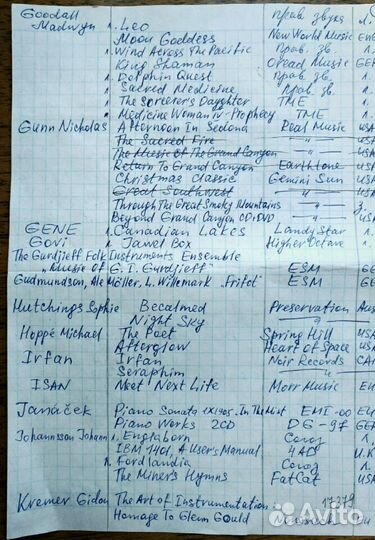 Goodall Medwyn л. Leo прав. звука л.
Moon Goddess New World Music ENG
л. Wind Across The Pacific прав. зв. л.
King Shaman Oread Music GE
л. Dolphin Quest прав. зв. л.
л. Sacred Medicine прав. зв. л.
л. The Sorcerer's Daughter TME л.
л. Medicine Woman IV-Prophecy TME л.
Gunn Nicholas Afternoon In Sedona Real Music USA
The Sacred Fire — " — USA
The Music Of The Grand Canyon — " — USA
Return To Grand Canyon Earthtone USA
Christmas Classic Gemini Sun USA
Great Southwest — " — USA
Through The Great Smoky Mountains — " —
Beyond Grand Canyon CD+DVD — " — USA
GENE л. Canadian Lakes LandyStar л.
Govi л. Jawel Box Higher Octave л.
The Gurdjieff Folk Instruments Ensemble
Music Of G. I. Gurdjieff ESM GE
Gudmundson, Ale Möller, L. Willemark. Frifot ESM GE
Hutchings Sophie Becalmed Preservation Aus
Night Sky — " —
Hoppé Michael The Poet Spring Hill USA
Afterglow Heart of Space USA
Irfan Irfan Noir Records CA
Seraphim
ISAN Meet Next Life Morr Music
Janáček Piano Sonata 1X1905, In The Mist EMI-00 EN
Piano Works 2CD DG-97 GE
Johannsson Johann л. Englaborn Союз л.
IBM 1401, A User's Manual 4AD U.K
л. Fordlandia Союз л.
The Miners Hymns FatCat USA
Kremer Gidon The Art of Instrumentation 17279
Homage To Glenn Gould Nonesuch
Avito